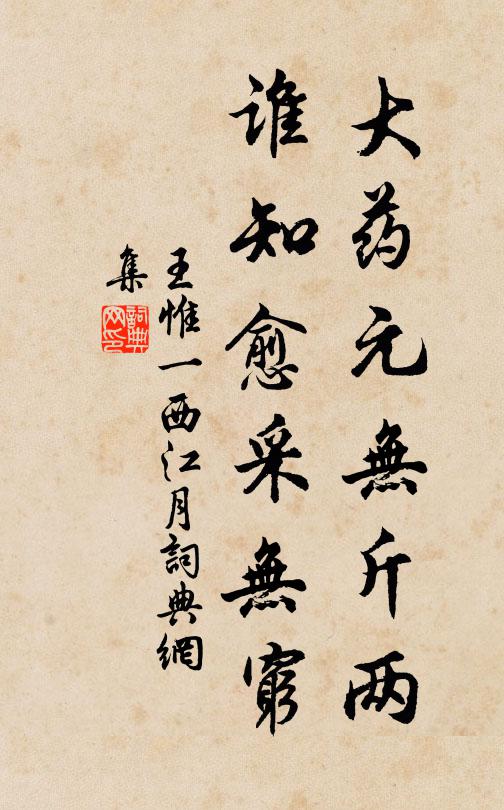 大药元無斤两
谁知愈采無窮
王惟一西江月詞典網
集
詞典网印